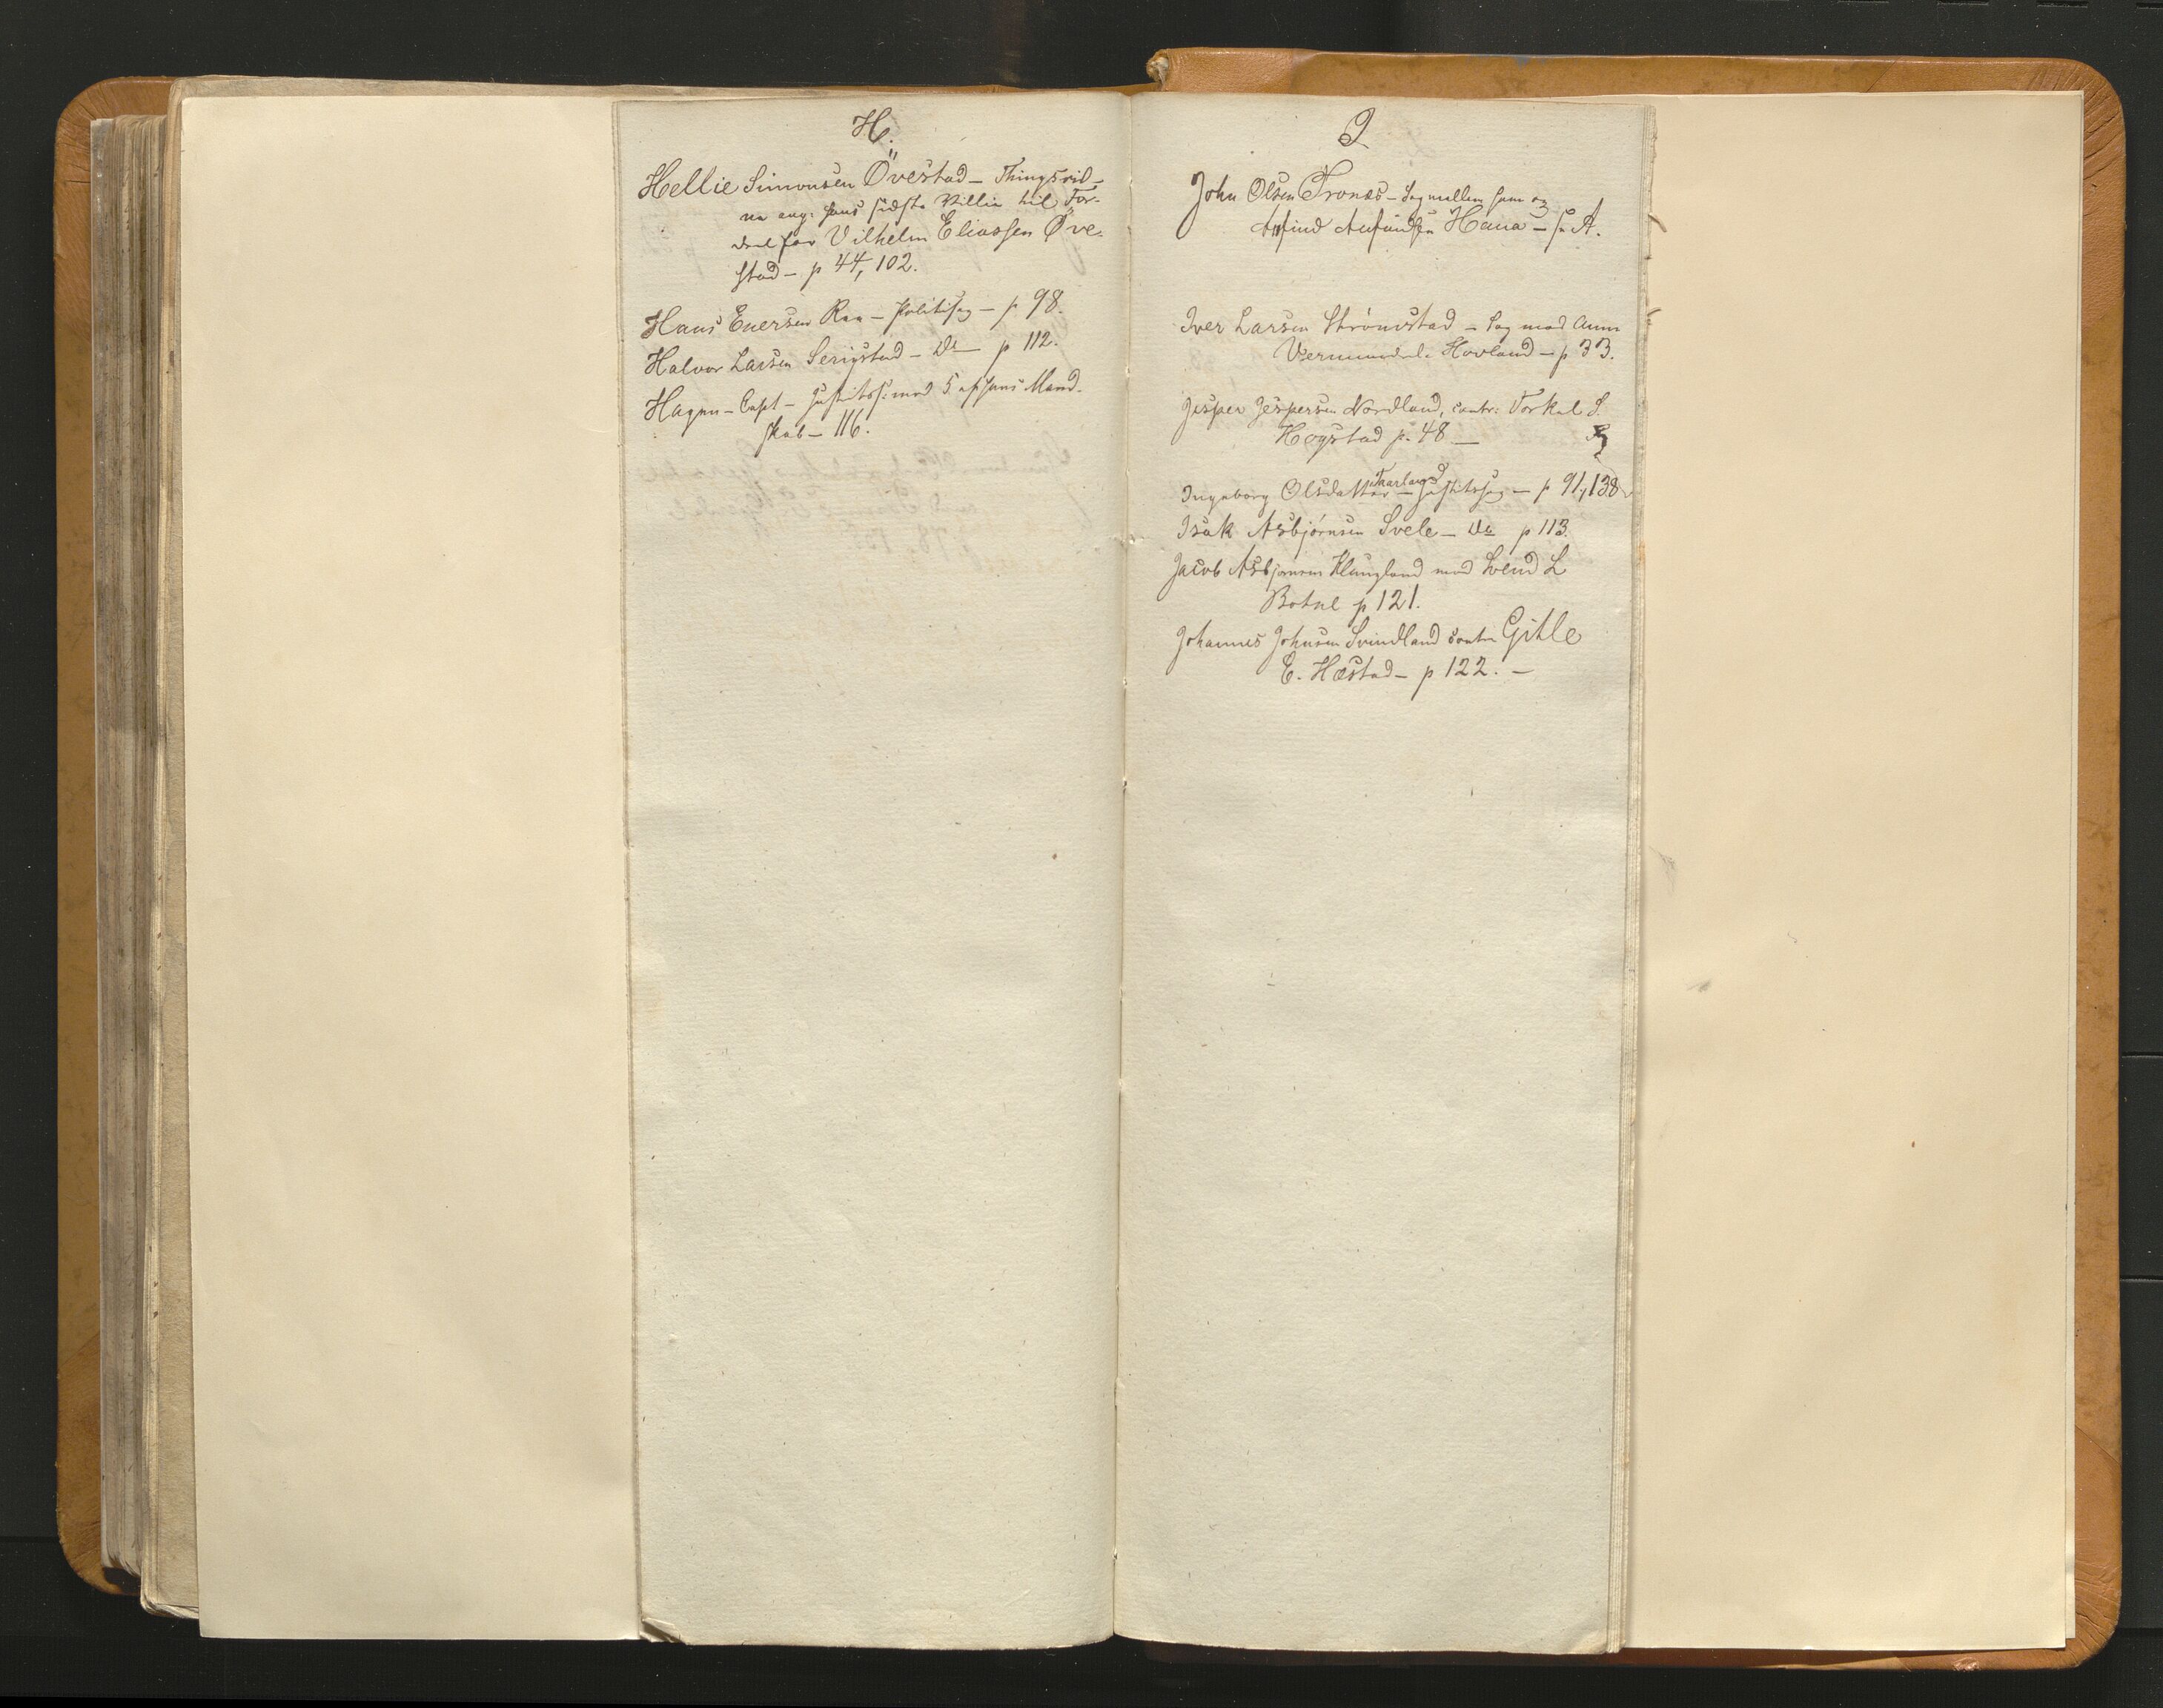 H.
Hellie Simonsen Övestad – Thingsvid-
ne ang: hans sidste Villie til For-
deel for Vilhelm Eliassen Öve-
stad – p 44, 102.
Hans Enersen Raa – Politisag – p 98.
Halvor Larsen Serigstad – Do – p 112.
Hagen – Capt – Justitss: mod 5 af hans Mand-
skab – 116.
I
John Olsen Tronæs – Sag mellem ham og
Anfind Anfindsen Hana – se A.
Iver Larsen Strömstad – Sag mod Anne
Vermundsd. Hovland – p 33.
Jesper Jespersen Nordland, contr: Torkel S.
Hogstad p. 48 –
Ingeborg Olsdatter Tharlang – Justitssag – p 91, 138
Isak Asbjörnsen Svele – Do p 113.
Jacob Asbjörnsen Klungland mod Svend L
Botne p 121.
Johannes Johnsen Svindland contra Gitle
E. Hæstad – p 122. –